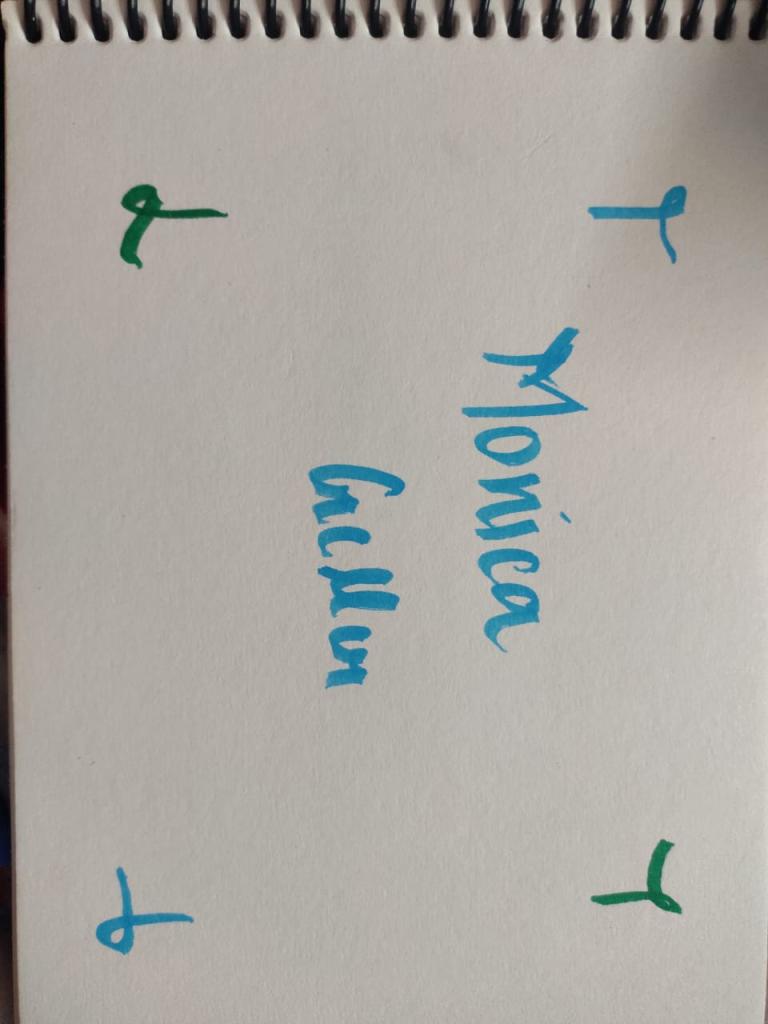 Monica
Geller